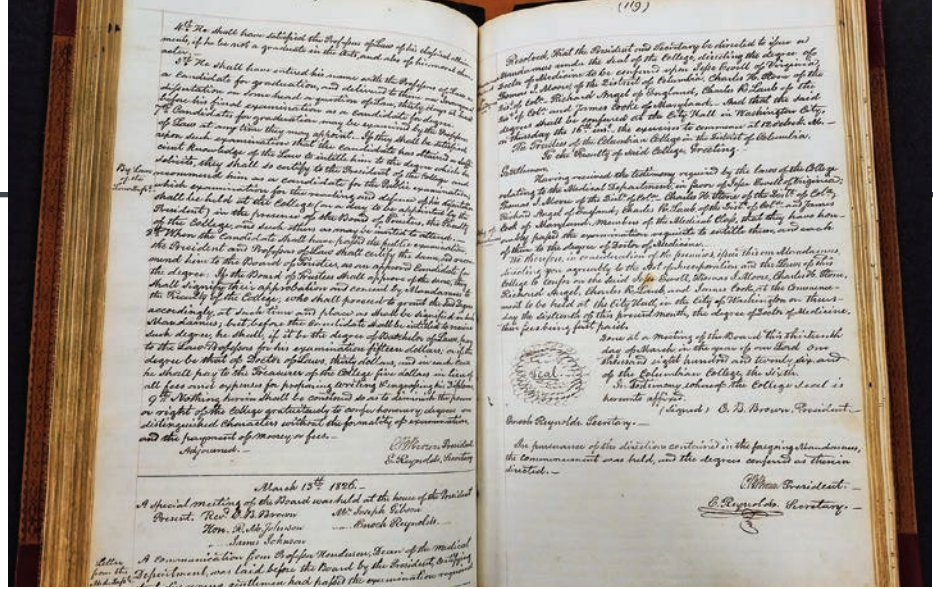 4th He shall have satisfied the Professors of Law of his classical attain-
ments, if he be not a graduate in the Arts, and also of his moral char-
acter.—
5th He shall have entered his name with the Professors of Law, as
a Candidate for graduation, and delivered to them an Inaugural
dissertation on some head or question of Law, thirty days at least
before his final examination as a candidate for degree.
7th Candidates for graduation may be examined by the Professors
of Law at any time they may appoint. If they shall be satisfied
upon such examination that the candidate has attained a suffi-
cient knowledge of the Law to entitle him to the degree which he
solicits, they shall so certify to the President of the College and
recommend him as a candidate for the Public examination,
By Laws
of the
which examination for the reading and defence of his dissertation
shall be held at the College (on a day to be appointed by the
President) in the presence of the Board of Trustees the Faculty
of the College, and such others as may be invited to attend.—
8th When the Candidate shall have passed the public examination
the President and Professors of Law shall certify the same, and recom
mend him to the Board of Trustees, as an approved Candidate for
the degree: If the Board of Trustees shall approve of the same, they
shall signify their approbation and consent by Mandamus to
the Faculty of the College, who shall proceed to grant the said Degree
accordingly, at such time and place as shall be signified in his
Mandamus; but before the Candidate shall be entitled to receive
such degree, he shall, if it be the degree of Batchelor of Laws, pay
to the Law Professors for his examination fifteen dollars; or if the
degree be that of Doctor of Laws, thirty dollars, and in each case
he shall pay to the Treasurer of the College five dollars in lieu of
all fees and expenses for preparing writing & engrossing his Diploma
9th Nothing herein shall be construed so as to diminish the power
or right of the College gratuitously to confer honorary degrees on
distinguished characters without the formality of examination
and the payment of money or fees.—
Adjourned.—
President
E. Reynolds, Secretary
March 13th 1826.—
A special meeting of the Board was held at the house of the President
Present, Revd O. B. Brown Mr. Joseph Gibson
Hon. R. M. Johnson — Enoch Reynolds.—
James Johnson
Letter
from the
Med. Dept.
A communication from Professor Henderson, Dean of the Medical
Department, was laid before the Board by the President, certifying
gentlemen had passed the examination required
(119)
Resolved, That the President and Secretary be directed to issue a
Mandamus under the seal of the College, directing the degree of
Doctor of Medicine to be conferred upon Jesse Ewell of Virginia,
Thomas I. Moore, of the District of Columbia, Charles H. Stone of the
Dist. of Cola. Richard Angel of England, Charles K. Laub of the
Dist. of Cola. and James Cooke of Maryland. And that the said
degrees shall be conferred at the City Hall in Washington City,
on Thursday the 16th inst. the exercises to commence at 12 o'clock M.—
The Trustees of the Columbian College in the District of Columbia.
To the Faculty of said College, Greeting.—
Gentlemen
Having received the testimony required by the laws of the College
relating to the Medical Department, in favor of Jesse Ewell of Virginia,
Thomas I. Moore of the Dist. of Cola. Charles H. Stone of the Dist. of Cola,
Richard Angel of England, Charles K. Laub, of the Dist. of Cola. and James
Cook of Maryland, Members of the Medical Class, that they have hon-
orably passed the examination requisite to entitle them, and each
of them to the degree of Doctor of Medicine.
We therefore, in consideration of the premises, issue this our Mandamus
directing you agreeably to the Act of Incorporation and the Laws of this
College to Confer on the said Jesse Ewell, Thomas I. Moore, Charles H. Stone,
Richard Angel, Charles K. Laub, and James Cook, at the Commence-
ment to be held at the City Hall, in the City of Washington on thurs-
day the sixteenth of this present month, the degree of Doctor of Medicine,
their fees being first paid.
Done at a meeting of the Board this thirteenth
day of March in the year of our Lord One
thousand eight hundred and twenty six, and
of the Columbian College the sixth.
Seal
In Testimony whereof the College Seal is
hereunto affixed.
(signed) O. B. Brown, President.—
Enoch Reynolds, Secretary.—
In pursuance of the direction contained in the foregoing Mandamus,
the commencement was held, and the degrees conferred as therein
directed.—
President.—
E. Reynolds. Secretary.—